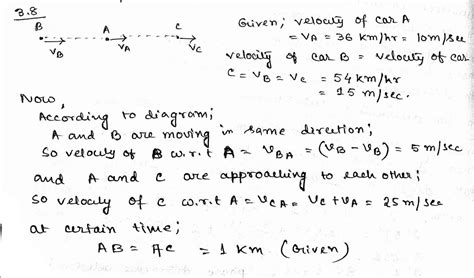 3.8
B A C
V_B V_A V_C
Given; velocity of car A
= V_A = 36 km/hr = 10 m/sec
velocity of car B = velocity of car
C = V_B = V_C = 54 km/hr
= 15 m/sec.
Now,
According to diagram;
A and B are moving in same direction;
So velocity of B w.r.t A = V_BA = (V_B - V_B) = 5 m/sec
and A and C are approaching to each other;
So velocity of C w.r.t A = V_CA = V_C + V_A = 25 m/sec
at certain time;
AB = AC = 1 Km (Given)